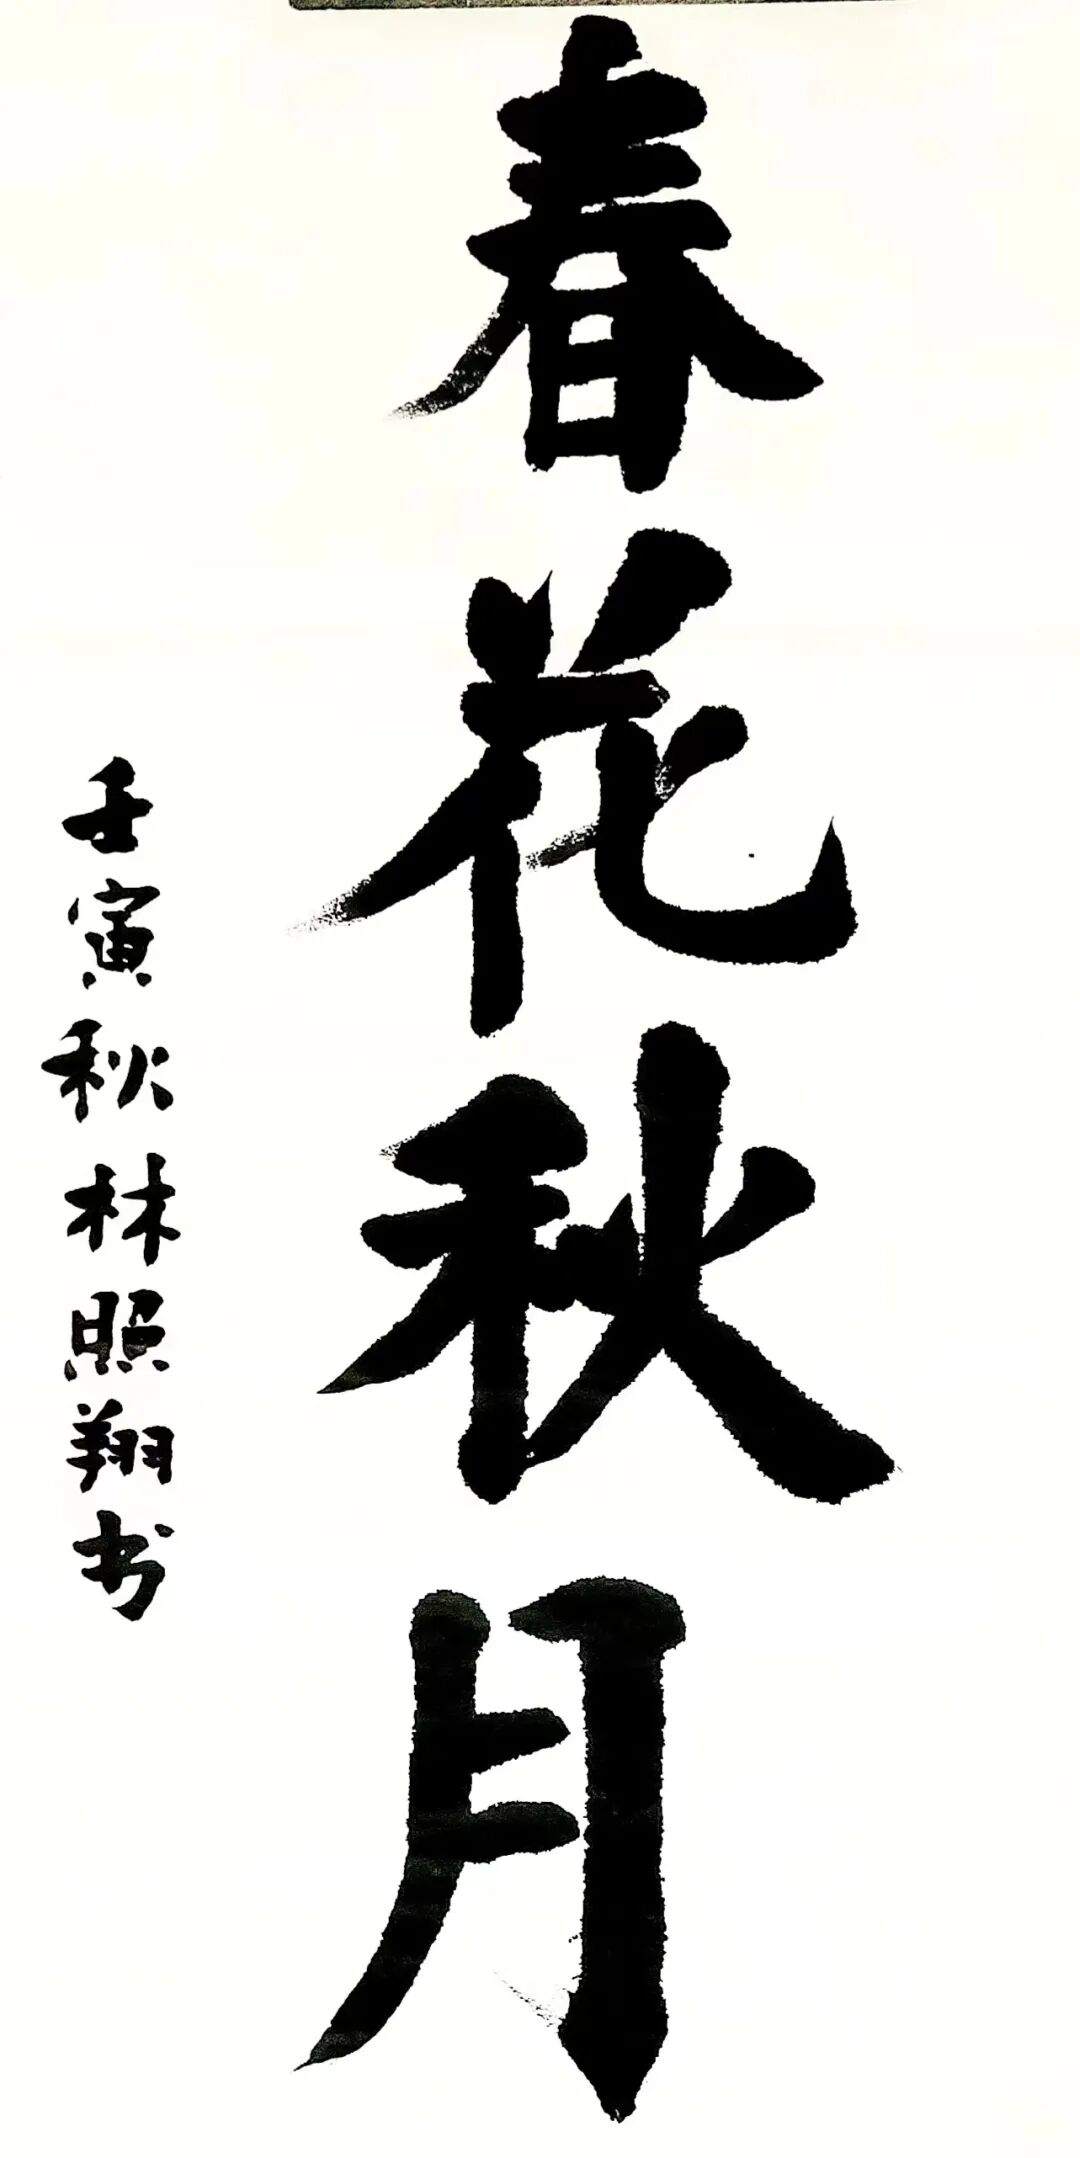 春花秋月
壬寅秋林照翔书